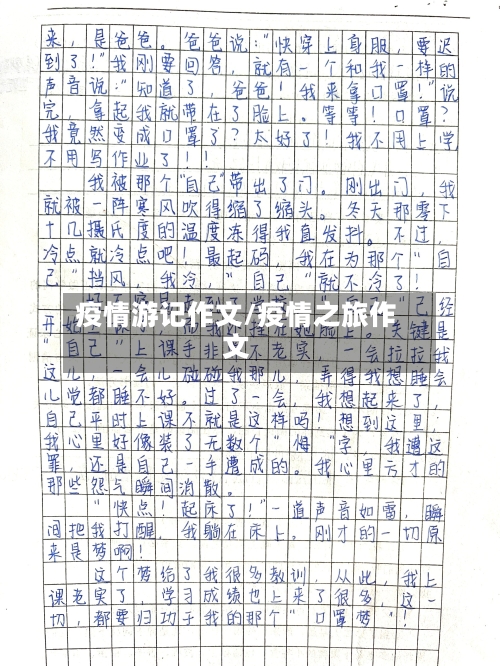 来，是爸爸。爸爸说："快穿上身服，要迟
到了！"我刚要回答，就有一个和我一样的
声音说："知道了，爸爸！我来拿口罩！"说
完，拿起我就带在了脸上。等等！口罩？
我竟然变成口罩了？太好了！我不用上学
不用写作业了！！
我被那个"自己"带出了门。刚出门，我
就被一阵寒风吹得缩了缩头。冬天那零下
十几摄氏度的温度冻得我直发抖。不过，
冷点就冷点吧！最起码，我在为那个"自
己"挡风，我冷，"自己"就不冷了！
疫情游记作文/疫情之旅作
文
"自己"上课手非常不老实，一会拉拉我
这儿，一会儿碰碰我那儿，弄得我想睡会
儿觉都睡不好。过了一会，我想起来了，
自己平时上课不就是这样吗！想到这里，
我心里好像装了无数个"悔"字，我遭这
罪，还是自己一手遭成的。我心里方才的
那些怨气瞬间消散。
"快点！起床了！"一道声音如雷，瞬
间把我打醒，我躺在床上。刚才的一切原
来是梦啊！
这个梦给了我很多教训，从此，我上
课老实了，学习成绩也上来了很多，这一
切，都要归功于我的那个"口罩梦"！